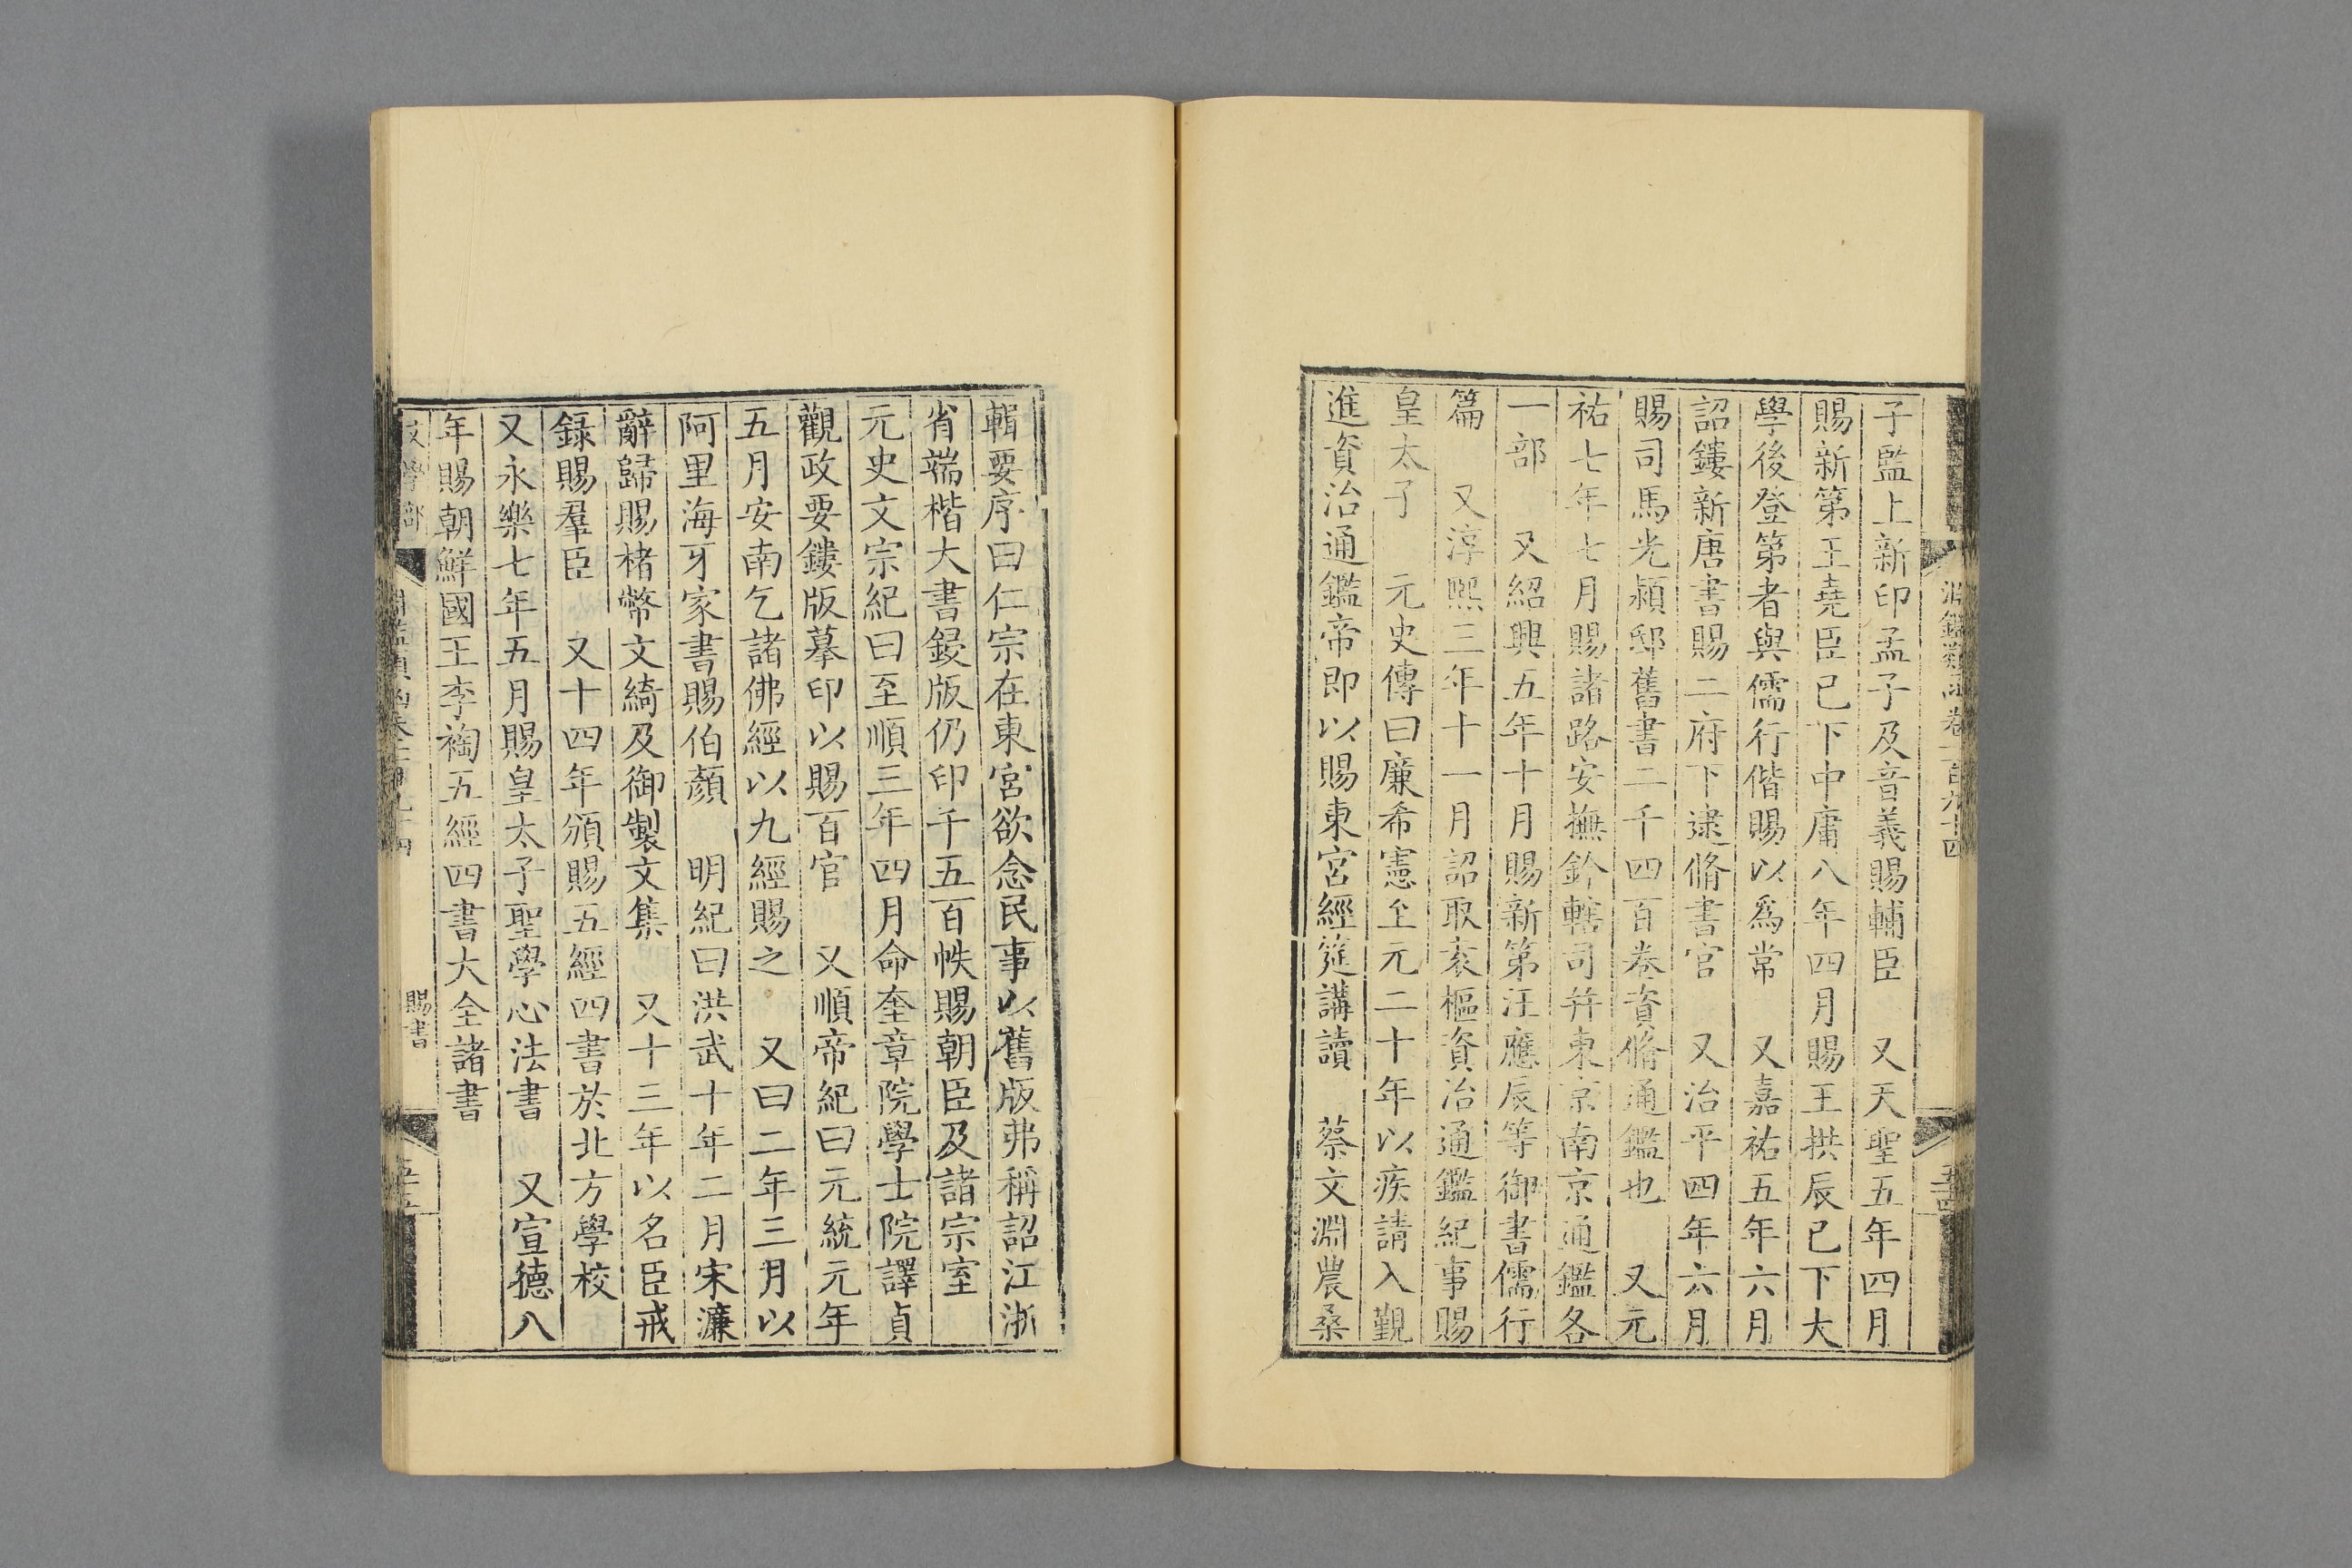 淵鑑類函卷一百九十四
子監上新印孟子及音義賜輔臣　又天聖五年四月
賜新第王堯臣已下中庸八年四月賜王拱辰已下大
學後登第者與儒行偕賜以爲常　又嘉祐五年六月
詔鏤新唐書賜二府下逮脩書官　又治平四年六月
賜司馬光潁邸舊書二千四百卷資脩通鑑也　又元
祐七年七月賜諸路安撫鈐轄司并東京南京通鑑各
一部　又紹興五年十月賜新第汪應辰等御書儒行
篇　又淳熙三年十一月詔取袁樞資治通鑑紀事賜
皇太子　元史傳曰廉希憲至元二十年以疾請入覲
進資治通鑑帝即以賜東宮經筵講讀　蔡文淵農桑
輯要序曰仁宗在東宮欲念民事以舊版弗稱詔江浙
省端楷大書鋟版仍印千五百帙賜朝臣及諸宗室
元史文宗紀曰至順三年四月命奎章院學士院譯貞
觀政要鏤版摹印以賜百官　又順帝紀曰元統元年
五月安南乞諸佛經以九經賜之　又曰二年三月以
阿里海牙家書賜伯顏　明紀曰洪武十年二月宋濂
辭歸賜楮幣文綺及御製文集　又十三年以名臣戒
錄賜羣臣　又十四年頒賜五經四書於北方學校
又永樂七年五月賜皇太子聖學心法書　又宣德八
年賜朝鮮國王李裪五經四書大全諸書
賜書